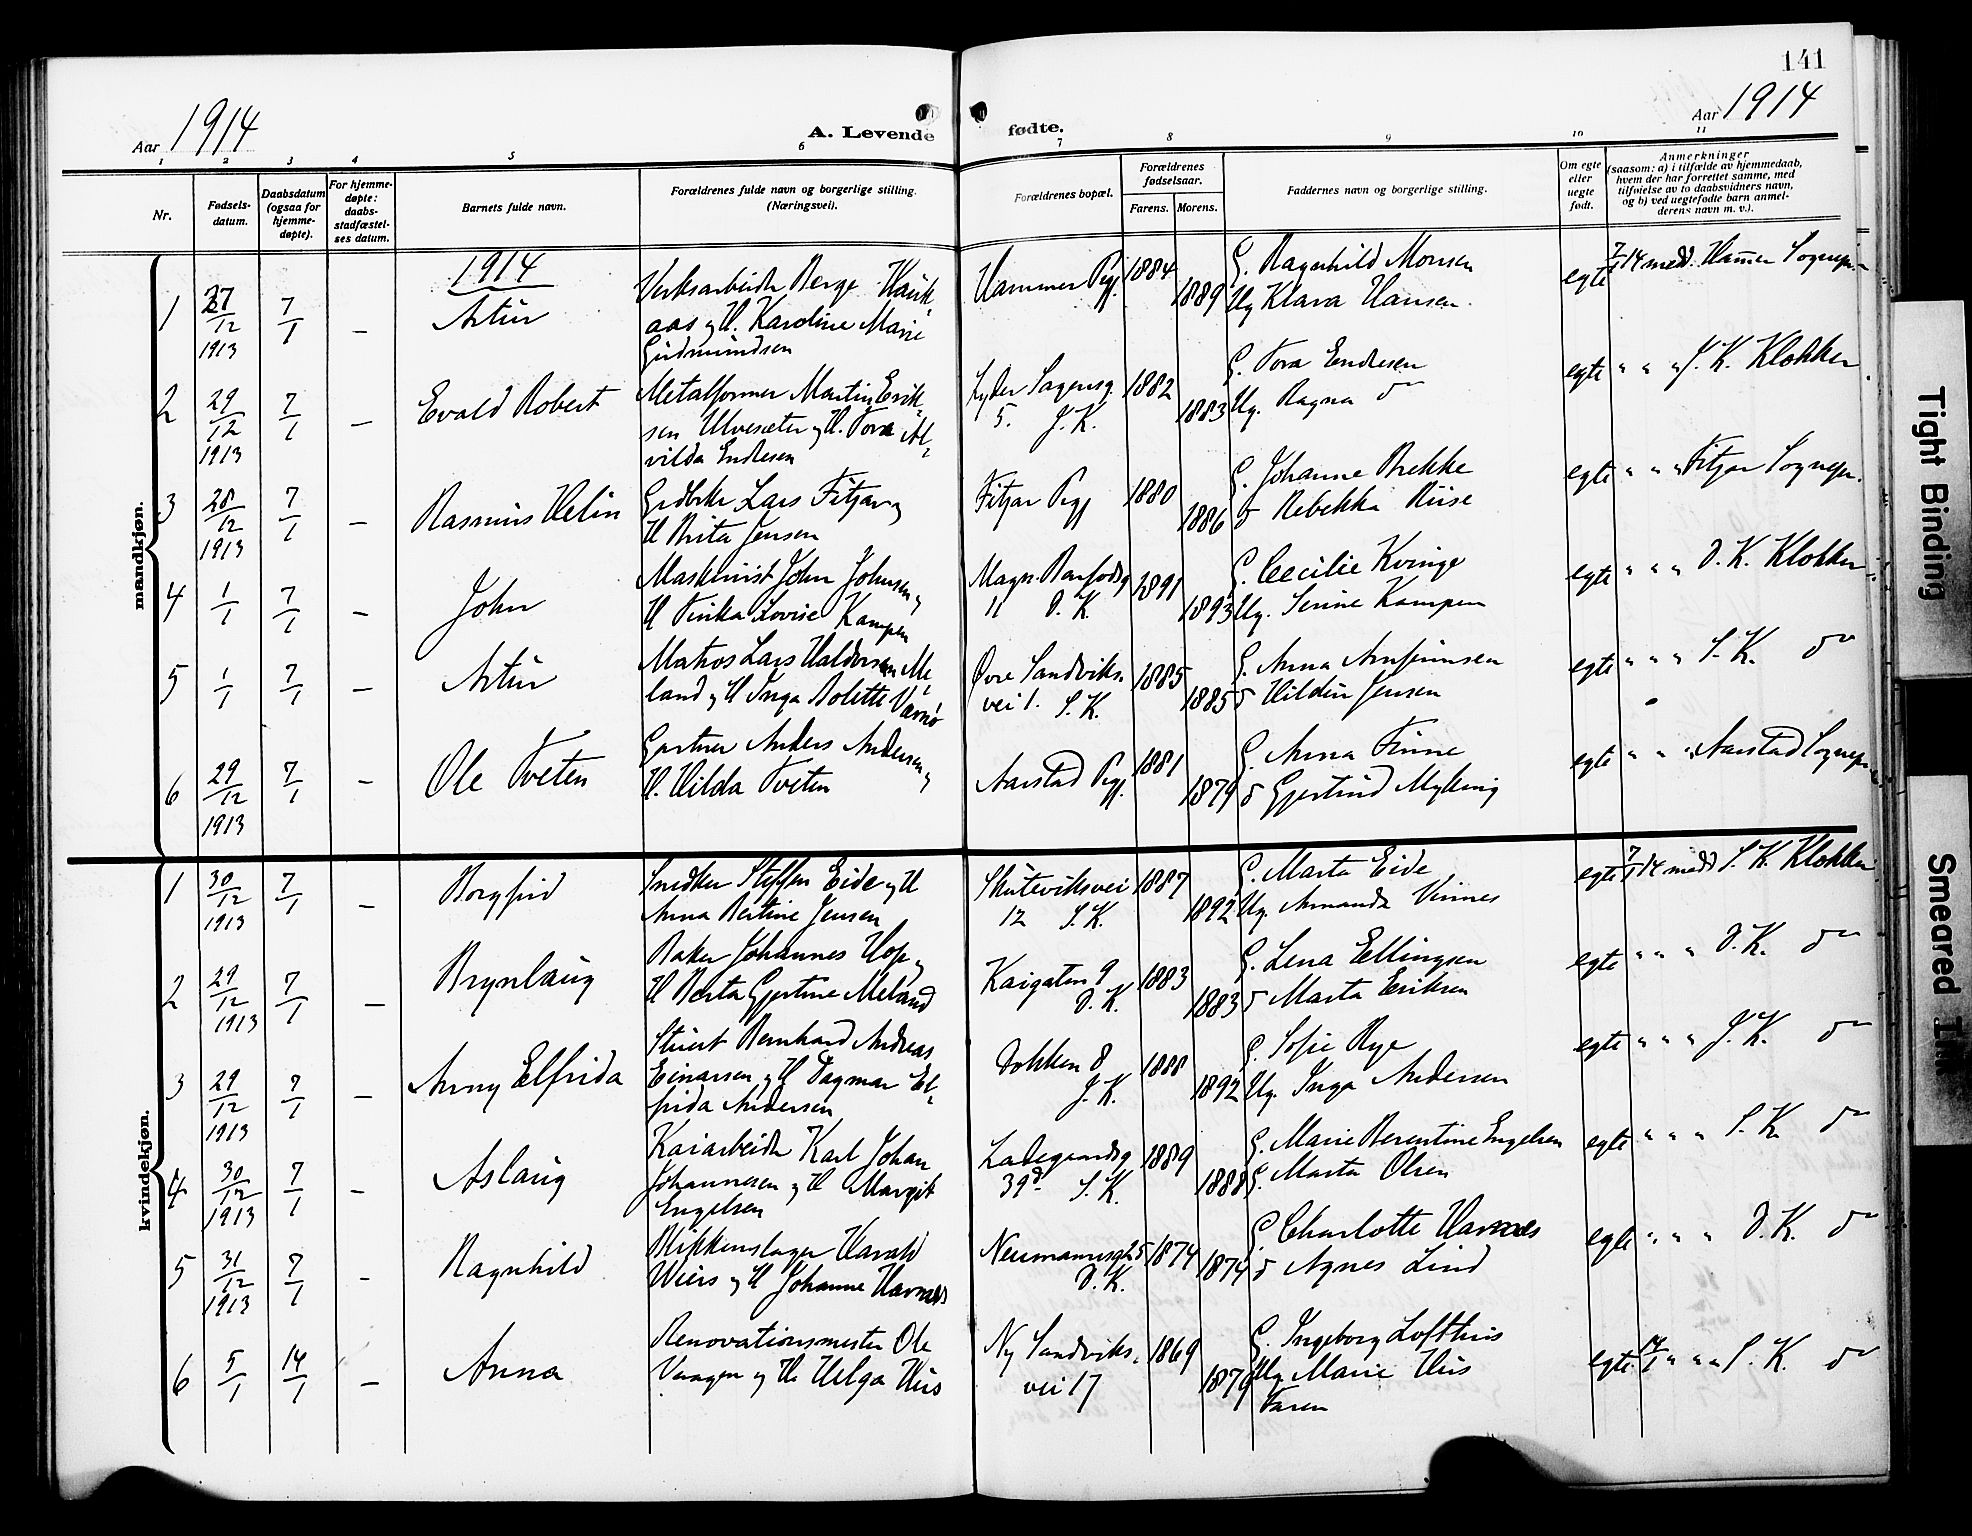 141
Aar 1914
A. Levende fødte.
Aar 1914
1 2 3 4 5 6 7 8 9 10 11
Nr.
Fødsels-
datum.
Daabsdatum
(ogsaa for
hjemme-
døpte).
For hjemme-
døpte:
daabs-
stadfæstel-
ses datum.
Barnets fulde navn.
Forældrenes fulde navn og borgerlige stilling.
(Næringsvei).
Forældrenes bopæl.
Forældrenes
fødselsaar.
Farens. Morens.
Faddernes navn og borgerlige stilling.
Om egte
eller
uegte
født.
Anmerkninger
(saasom: a) i tilfælde av hjemmedaab,
hvem der har forrettet samme, med
tilføielse av to daabsvidners navn,
og b) ved uegtefødte barn anmel-
derens navn m. v.).
mandkjøn.
1914
1 27/12 1913 7/1 – Artur
Verksarbeider Berge Hauk-
aas og H. Karoline Marie
Gudmundsen
Hammer Pgj. 1884 1889
G. Ragnhild Monsen
Ug Klara Hansen
egte 7/1 14 medd. Hamer Sognepr.
2 29/12 1913 7/1 – Evald Robert
Metalformer Martin Erik-
sen Ulvesæter og H. Tora Al-
vilda Endresen
Lyder Sagensg.
5. J. K. 1882 1883
G. Tora Endresen
Ug. Ragna do
egte " " " J. K. Klokker
3 28/12 1913 7/1 – Rasmus Helin
Grdbrker Lars Fitjar og
H Brita Jensen
Fitjar Pgj 1880 1886
G. Johanne Brekke
G Rebekka Riise
egte " " " Fitjar Sognepr.
4 1/1 7/1 – John
Maskinist John Johnsen og
H Tinka Lovise Kampen
Magn. Barfodsg
11 D. K. 1891 1893
G. Cecilie Kvinge
Ug. Serine Kampen
egte " " " D. K. Klokker
5 1/1 7/1 – Artur
Matros Lars Haldorsen Me-
land og H Inga Bolette Værnø
Øvre Sandviks-
vei 1. S. K. 1885 1885
G. Anna Arnfinnsen
G Hildur Jensen
egte " " " S. K. do
6 29/12 1913 7/1 – Ole Tveten
Gartner Anders Andersen og
H. Hilda Tveten
Aarstad Pgj. 1881 1879
G. Anna Finne
G Gjertrud Myking
egte " " " Aarstad Sognepr.
kvindekjøn.
1 30/12 1913 7/1 – Borgfrid
Snedker Steffen Eide og H
Anna Bertine Jensen
Skuteviksvei
12 S. K. 1887 1892
G. Marta Eide
Ug. Amanda Vinnes
egte 7/1 14 medd S. K. Klokker
2 29/12 1913 7/1 – Brynlaug
Baker Johannes Hop og
H Berta Gjertine Meland
Kaigaten 9
D. K. 1883 1883
G. Lena Ellingsen
G Marta Eriksen
egte " " " D. K. do
3 29/12 1913 7/1 – Anny Elfrida
Stuert Bernhard Andreas
Einarsen og H Dagmar El-
frida Andersen
Dokken 8
J. K. 1888 1892
G. Sofie Rye
Ug. Inga Andersen
egte " " " J. K. do
4 30/12 1913 7/1 – Aslaug
Kaiarbeider Karl Johan
Johannesen og H Margit
Engelsen
Ladegaardsg
39d S. K. 1889 1888
G. Marie Berentine Engelsen
G. Marta Olsen
egte " " " S. K. do
5 31/12 1913 7/1 – Ragnhild
Blikkenslager Harald
Wiers og H Johanne Havnæs
Neumannsg 25
D. K. 1874 1874
G. Charlotte Havnæs
G Agnes Lind
egte " " " D. K. do
6 5/1 14/1 – Anna
Renovationsmester Ole
Vaagen og H Helga Hus
Ny Sandviks-
vei 17 1869 1879
G. Ingeborg Lofthus
Ug Marie Hus
Faren
egte 14/1 " " " S. K. do
Tight Binding
Smeared Ink